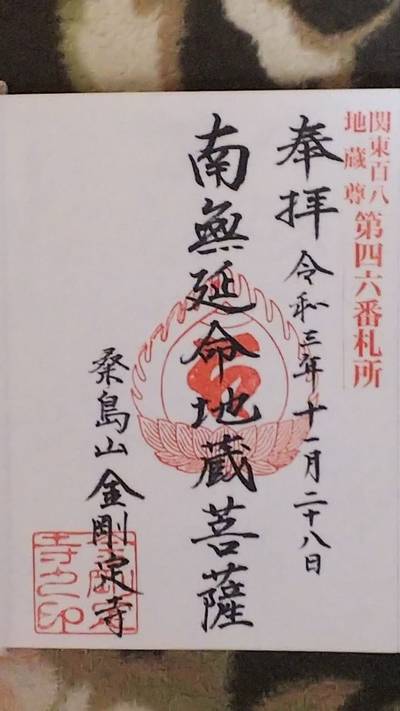 関東百八
地蔵尊
第四六番札所
奉拝 令和三年十一月二十八日
南無延命地蔵菩薩
桑島山 金剛定寺